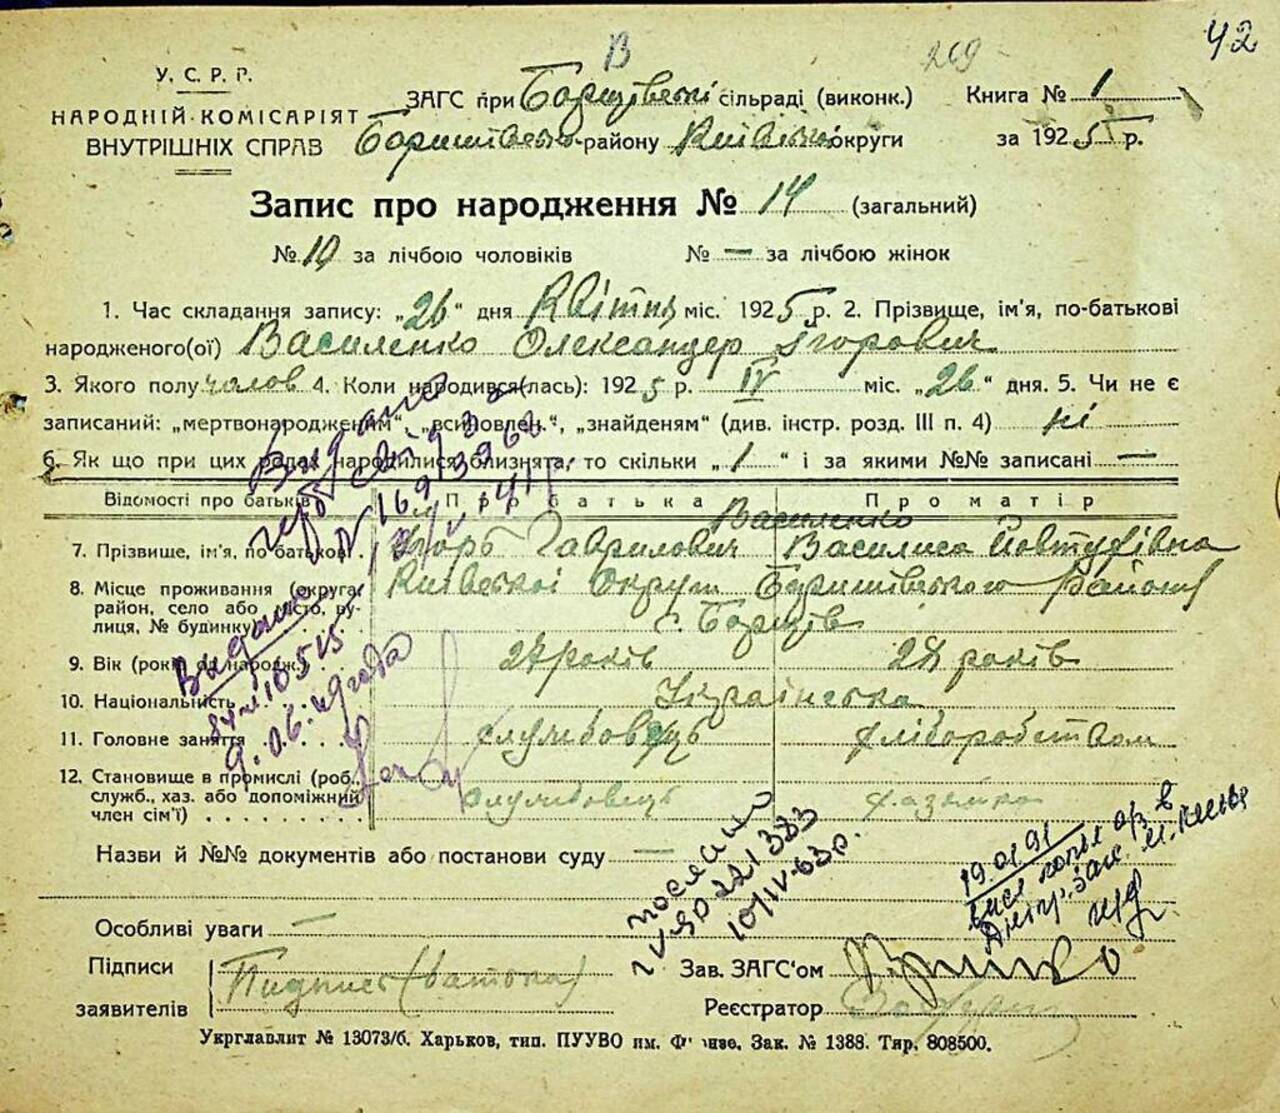 42
В
269
У. С. Р. Р.
НАРОДНІЙ КОМІСАРІЯТ
ВНУТРІШНІХ СПРАВ
ЗАГС при Борщівські сільраді (виконк.)
Книга № 1
Баришівсько району Київсько округи
за 1925 р.
Запис про народження № 14 (загальний)
№ 10 за лічбою чоловіків № — за лічбою жінок
1. Час складання запису: „26“ дня Квітня міс. 1925 р. 2. Прізвище, ім’я, по-батькові
народженого(ої) Василенко Олександер Ігорович
3. Якого полу чолов 4. Коли народився(лась): 1925 р. IV міс. „26“ дня. 5. Чи не є
записаний: „мертвонародженим“, „всиновлен.“, „знайденям“ (див. інстр. розд. III п. 4) ні
6. Як що при цих родах народилися близнята, то скільки „1“ і за якими №№ записані —
Відомості про батьків Про батька Про матір
Василенко
7. Прізвище, ім’я, по батькові . Ігорь Гаврилович Василиса Йовтухівна
8. Місце проживання (округа, Київської Округи Баришівського району
район, село або місто, ву-
лиця, № будинку) с. Борщів
9. Вік (років од народж.) 27 років 28 років
10. Національність Українська
11. Головне заняття службовець хліборобством
12. Становище в промислі (роб., службовець хазяйка
служб., хаз. або допоміжний
член сім’ї)
Видано
Выдано
9.06.49 года
Назви й №№ документів або постанови суду —
послано
IV ЯР 221383
10/IV-63 р.
19.01.91
Особливі уваги —
Підписи
заявителів
Підпис (батька)
Зав. ЗАГС‘ом
Реєстратор
Укрглавліт № 13073/б. Харьков, тип. ПУУВО им. Фрунзе. Зак. № 1388. Тир. 808500.